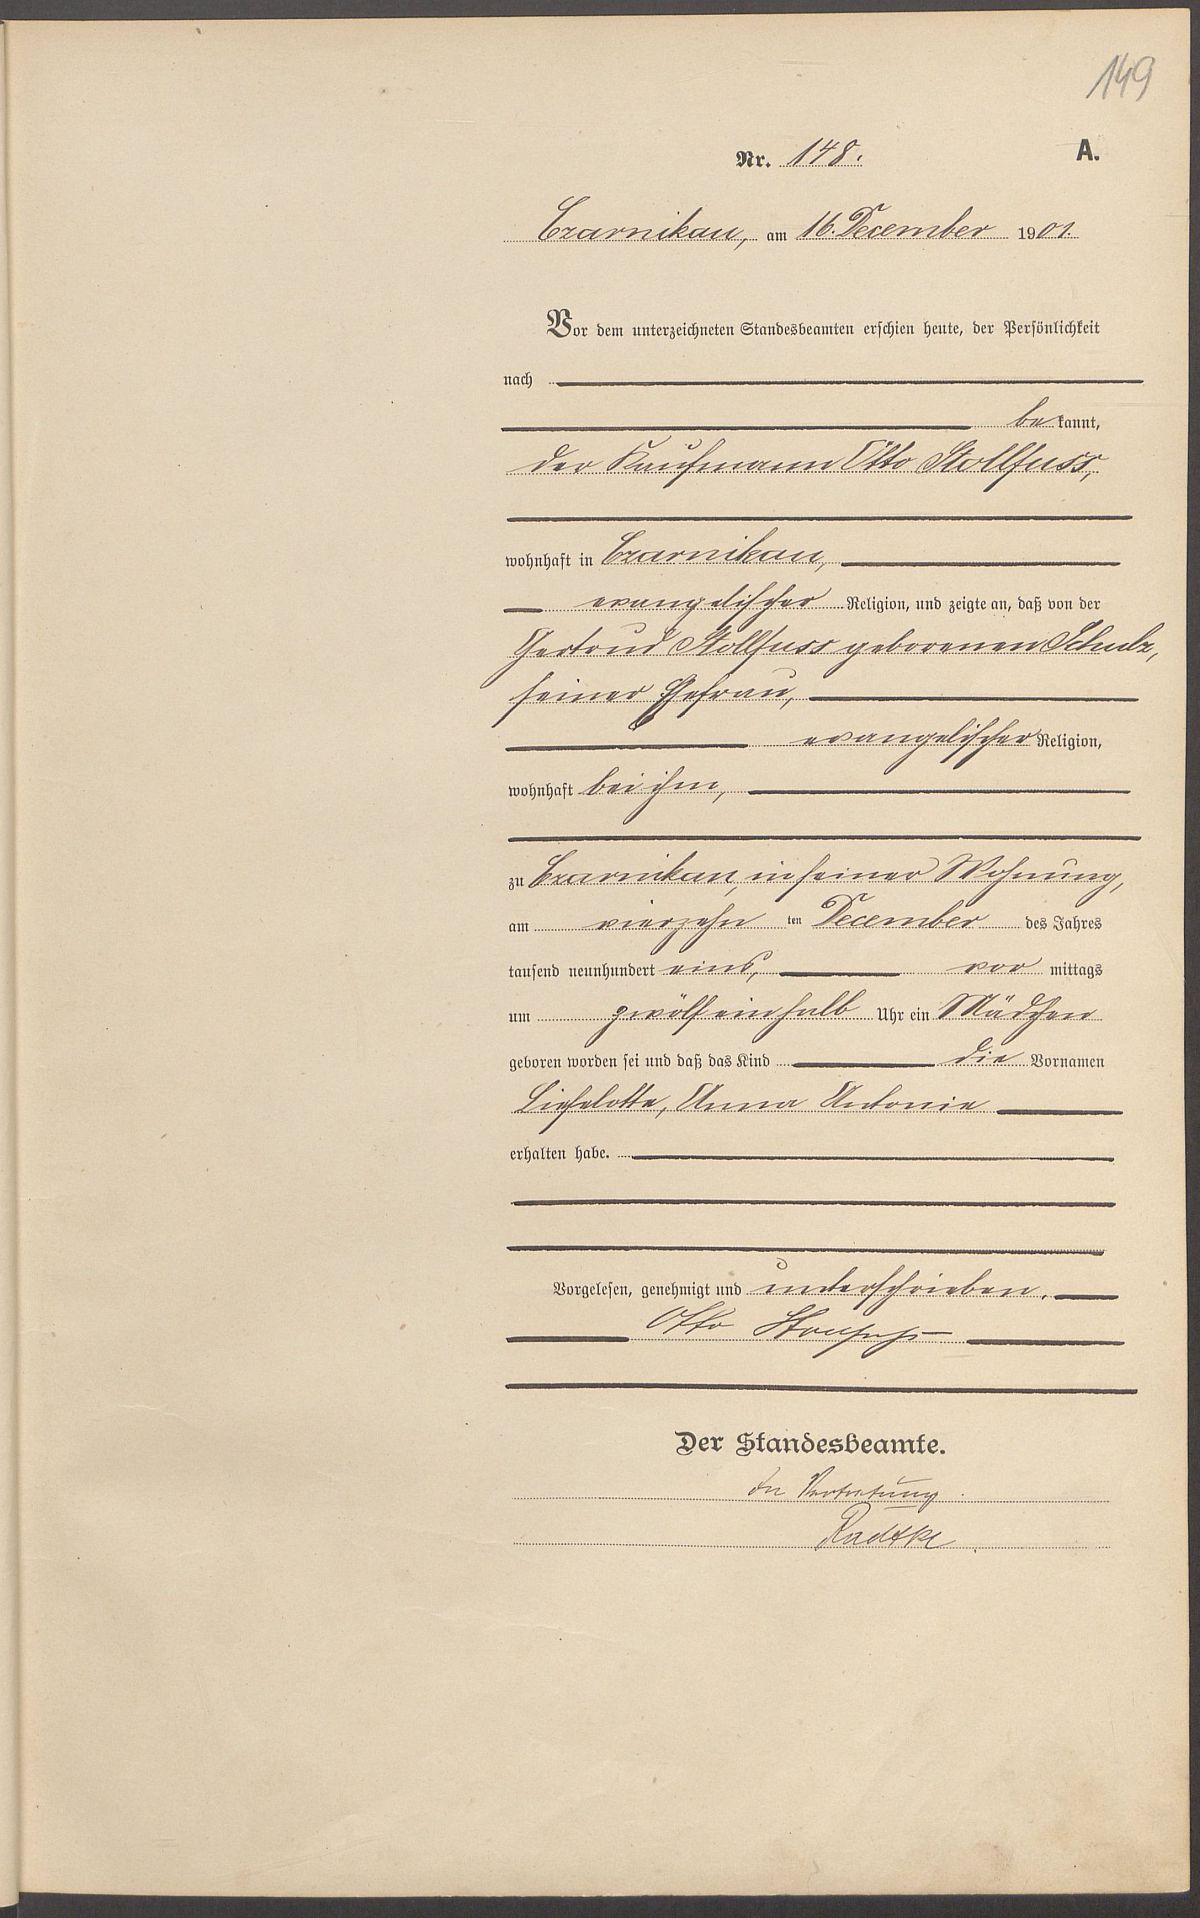 149
Nr. 148. A.
Czarnikau, am 16. December 1901.
Vor dem unterzeichneten Standesbeamten erschien heute, der Persönlichkeit
nach
be kannt,
der Kaufmann Otto Stollfuss,
wohnhaft in Czarnikau,
evangelischer Religion, und zeigte an, daß von der
Gertrud Stollfuss geborenen Schulz,
seiner Ehefrau,
evangelischer Religion,
wohnhaft bei ihm,
zu Czarnikau, in seiner Wohnung,
am vierzehn ten December des Jahres
tausend neunhundert eins, vor mittags
um zwölf einhalb Uhr ein Mädchen
geboren worden sei und daß das Kind die Vornamen
Lieselotte, Anna Antonie
erhalten habe.
Vorgelesen, genehmigt und unterschrieben.
Otto Stollfuß
Der Standesbeamte.
In Vertretung.
Radtke